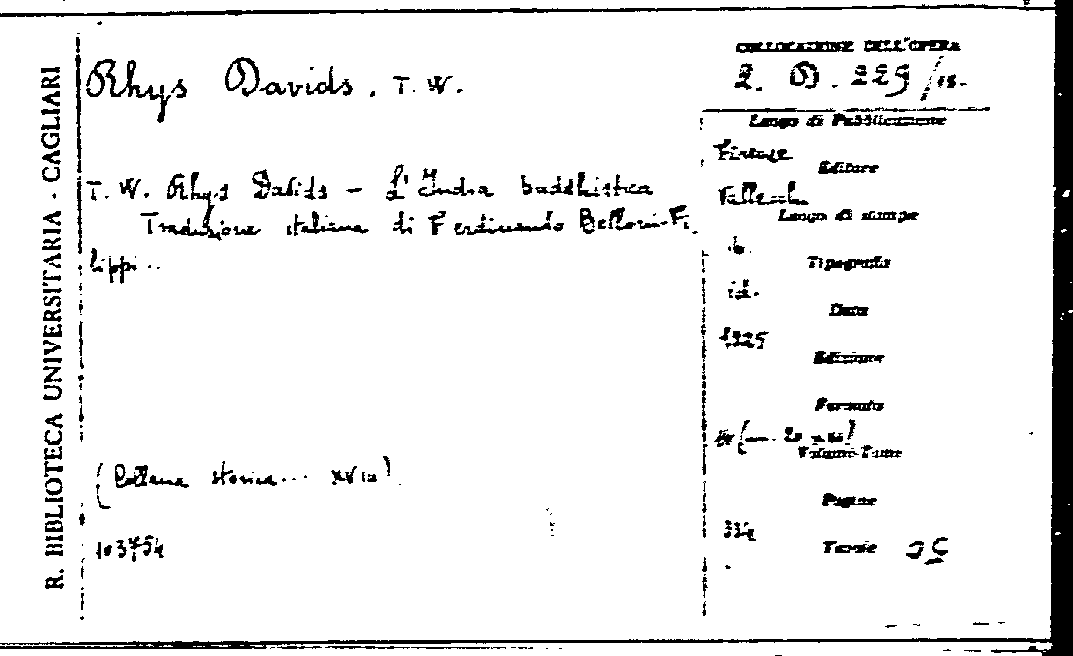 R. BIBLIOTECA UNIVERSITARIA - CAGLIARI
Rhys Davids, T. W.
T. W. Rhys Davids – L'India buddhistica
Traduzione italiana di Ferdinando Bellori-Fi
lippi..
(Collana storica... XVIII)
103754
COLLOCAZIONE DELL'OPERA
2. D. 229/18.
Luogo di Pubblicazione
Firenze
Editore
Vallecchi
Luogo di stampa
ib.
Tipografia
id.
Data
1925
Edizione
Formato
Volumi-Tomi
Pagine
334
Tavole